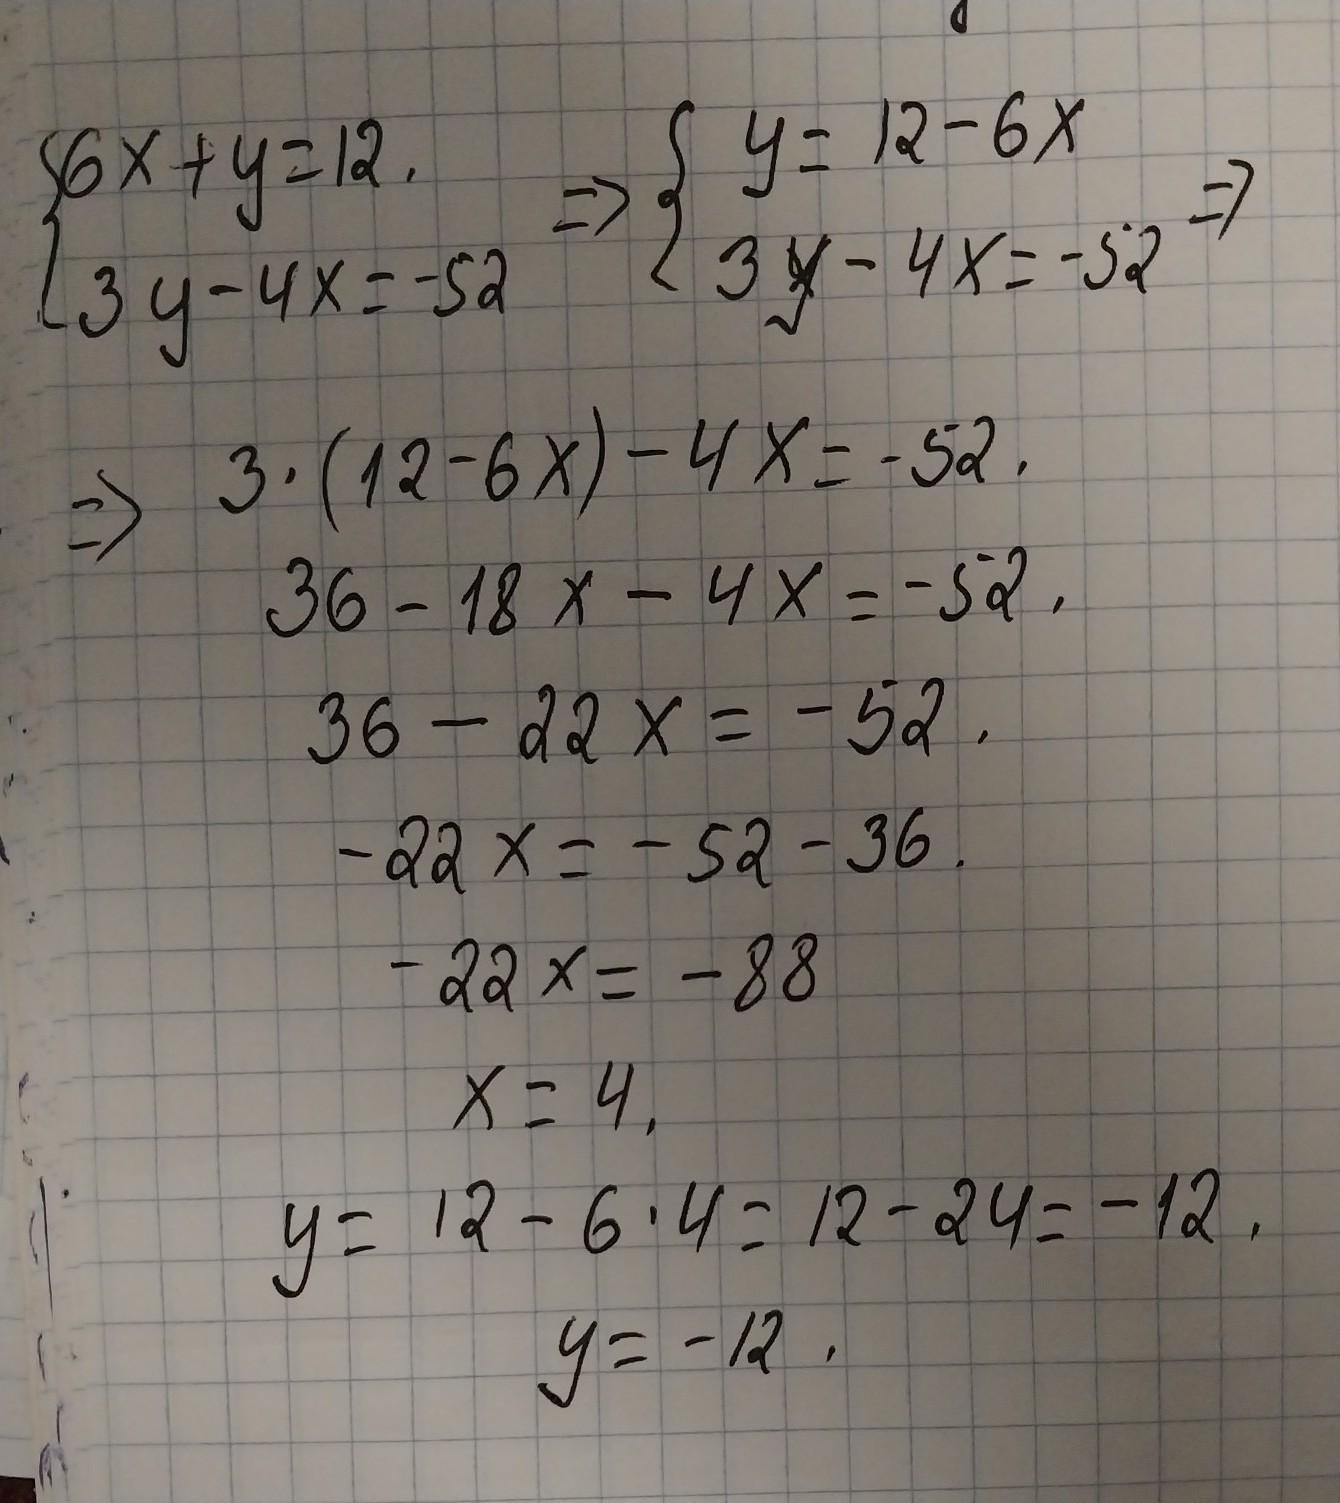 {6x+y=12. => {y=12-6x
{3y-4x=-52 {3y-4x=-52 =>
=> 3·(12-6x)-4x=-52.
36-18x-4x=-52.
36-22x=-52.
-22x=-52-36.
-22x=-88
x=4.
y=12-6·4=12-24=-12.
y=-12.